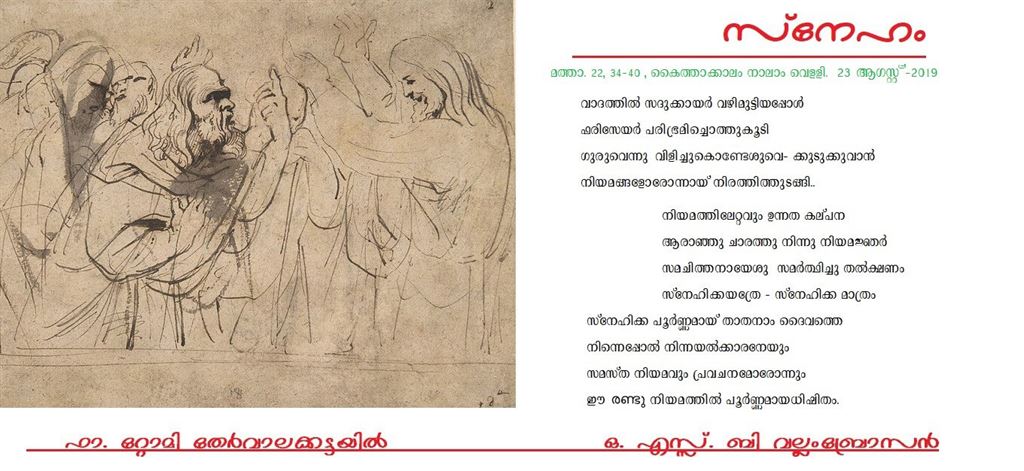 സ്നേഹം
മത്താ. 22, 34-40 , കൈത്താക്കാലം നാലാം വെള്ളി. 23 ആഗസ്റ്റ്-2019
വാദത്തിൽ സദുക്കായർ വഴിമുട്ടിയപ്പോൾ
ഫരിസേയർ പരിഭ്രമിച്ചൊത്തുകൂടി
ഗുരുവെന്നു വിളിച്ചുകൊണ്ടേശുവെ- ക്കുടുക്കുവാൻ
നിയമങ്ങളോരോന്നായ് നിരത്തിത്തുടങ്ങി..
നിയമത്തിലേറ്റവും ഉന്നത കല്പന
ആരാഞ്ഞു ചാരത്തു നിന്നു നിയമജ്ഞർ
സമചിത്തനായേശു സമർത്ഥിച്ചു തൽക്ഷണം
സ്നേഹിക്കയത്രേ - സ്നേഹിക്ക മാത്രം
സ്നേഹിക്ക പൂർണ്ണമായ് താതനാം ദൈവത്തെ
നിന്നെപ്പോൽ നിന്നയൽക്കാരനേയും
സമസ്ത നിയമവും പ്രവചനമോരോന്നും
ഈ രണ്ടു നിയമത്തിൽ പൂർണ്ണമായധിഷിതം.
ഫാ. റ്റോമി തേർവാലക്കട്ടയിൽ
ഒ. എസ്സ്. ബി വല്ലംബ്രോസൻ